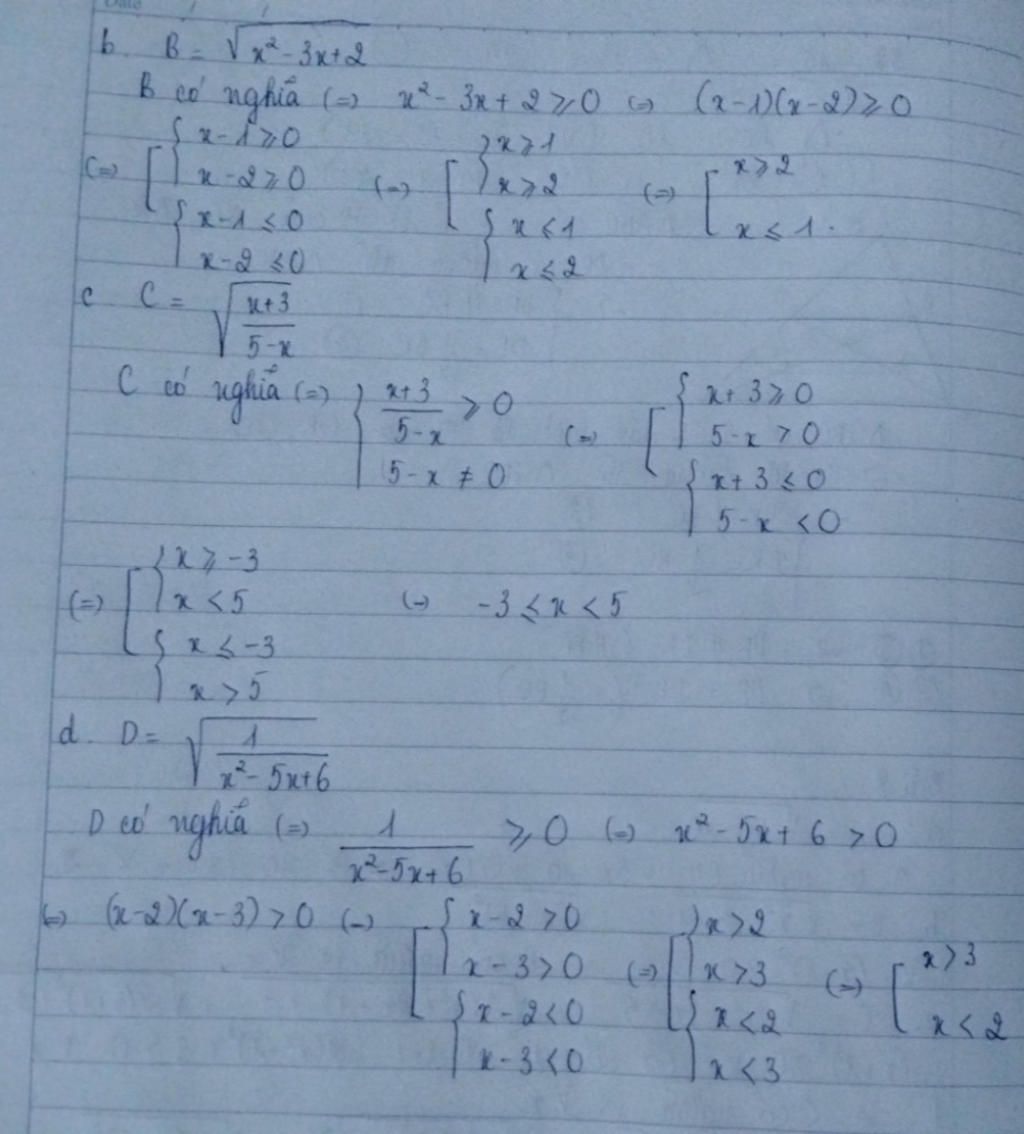 b. B = √(x² - 3x + 2)
B có nghĩa (=) x² - 3x + 2 ≥ 0 (=) (x-1)(x-2) ≥ 0
(=) [ { x-1 ≥ 0 ; x-2 ≥ 0 } { x-1 ≤ 0 ; x-2 ≤ 0 } (=) [ { x ≥ 1 ; x ≥ 2 } { x ≤ 1 ; x ≤ 2 } (=) [ x ≥ 2 ; x ≤ 1.
c C = √((x+3)/(5-x))
C có nghĩa (=) { (x+3)/(5-x) ≥ 0 ; 5-x ≠ 0 (=) [ { x+3 ≥ 0 ; 5-x > 0 } { x+3 ≤ 0 ; 5-x < 0 }
(=) [ { x ≥ -3 ; x < 5 } { x ≤ -3 ; x > 5 } (=) -3 ≤ x < 5
d. D = √(1/(x² - 5x + 6))
D có nghĩa (=) 1/(x² - 5x + 6) ≥ 0 (=) x² - 5x + 6 > 0
(=) (x-2)(x-3) > 0 (=) [ { x-2 > 0 ; x-3 > 0 } { x-2 < 0 ; x-3 < 0 } (=) [ { x > 2 ; x > 3 } { x < 2 ; x < 3 } (=) [ x > 3 ; x < 2